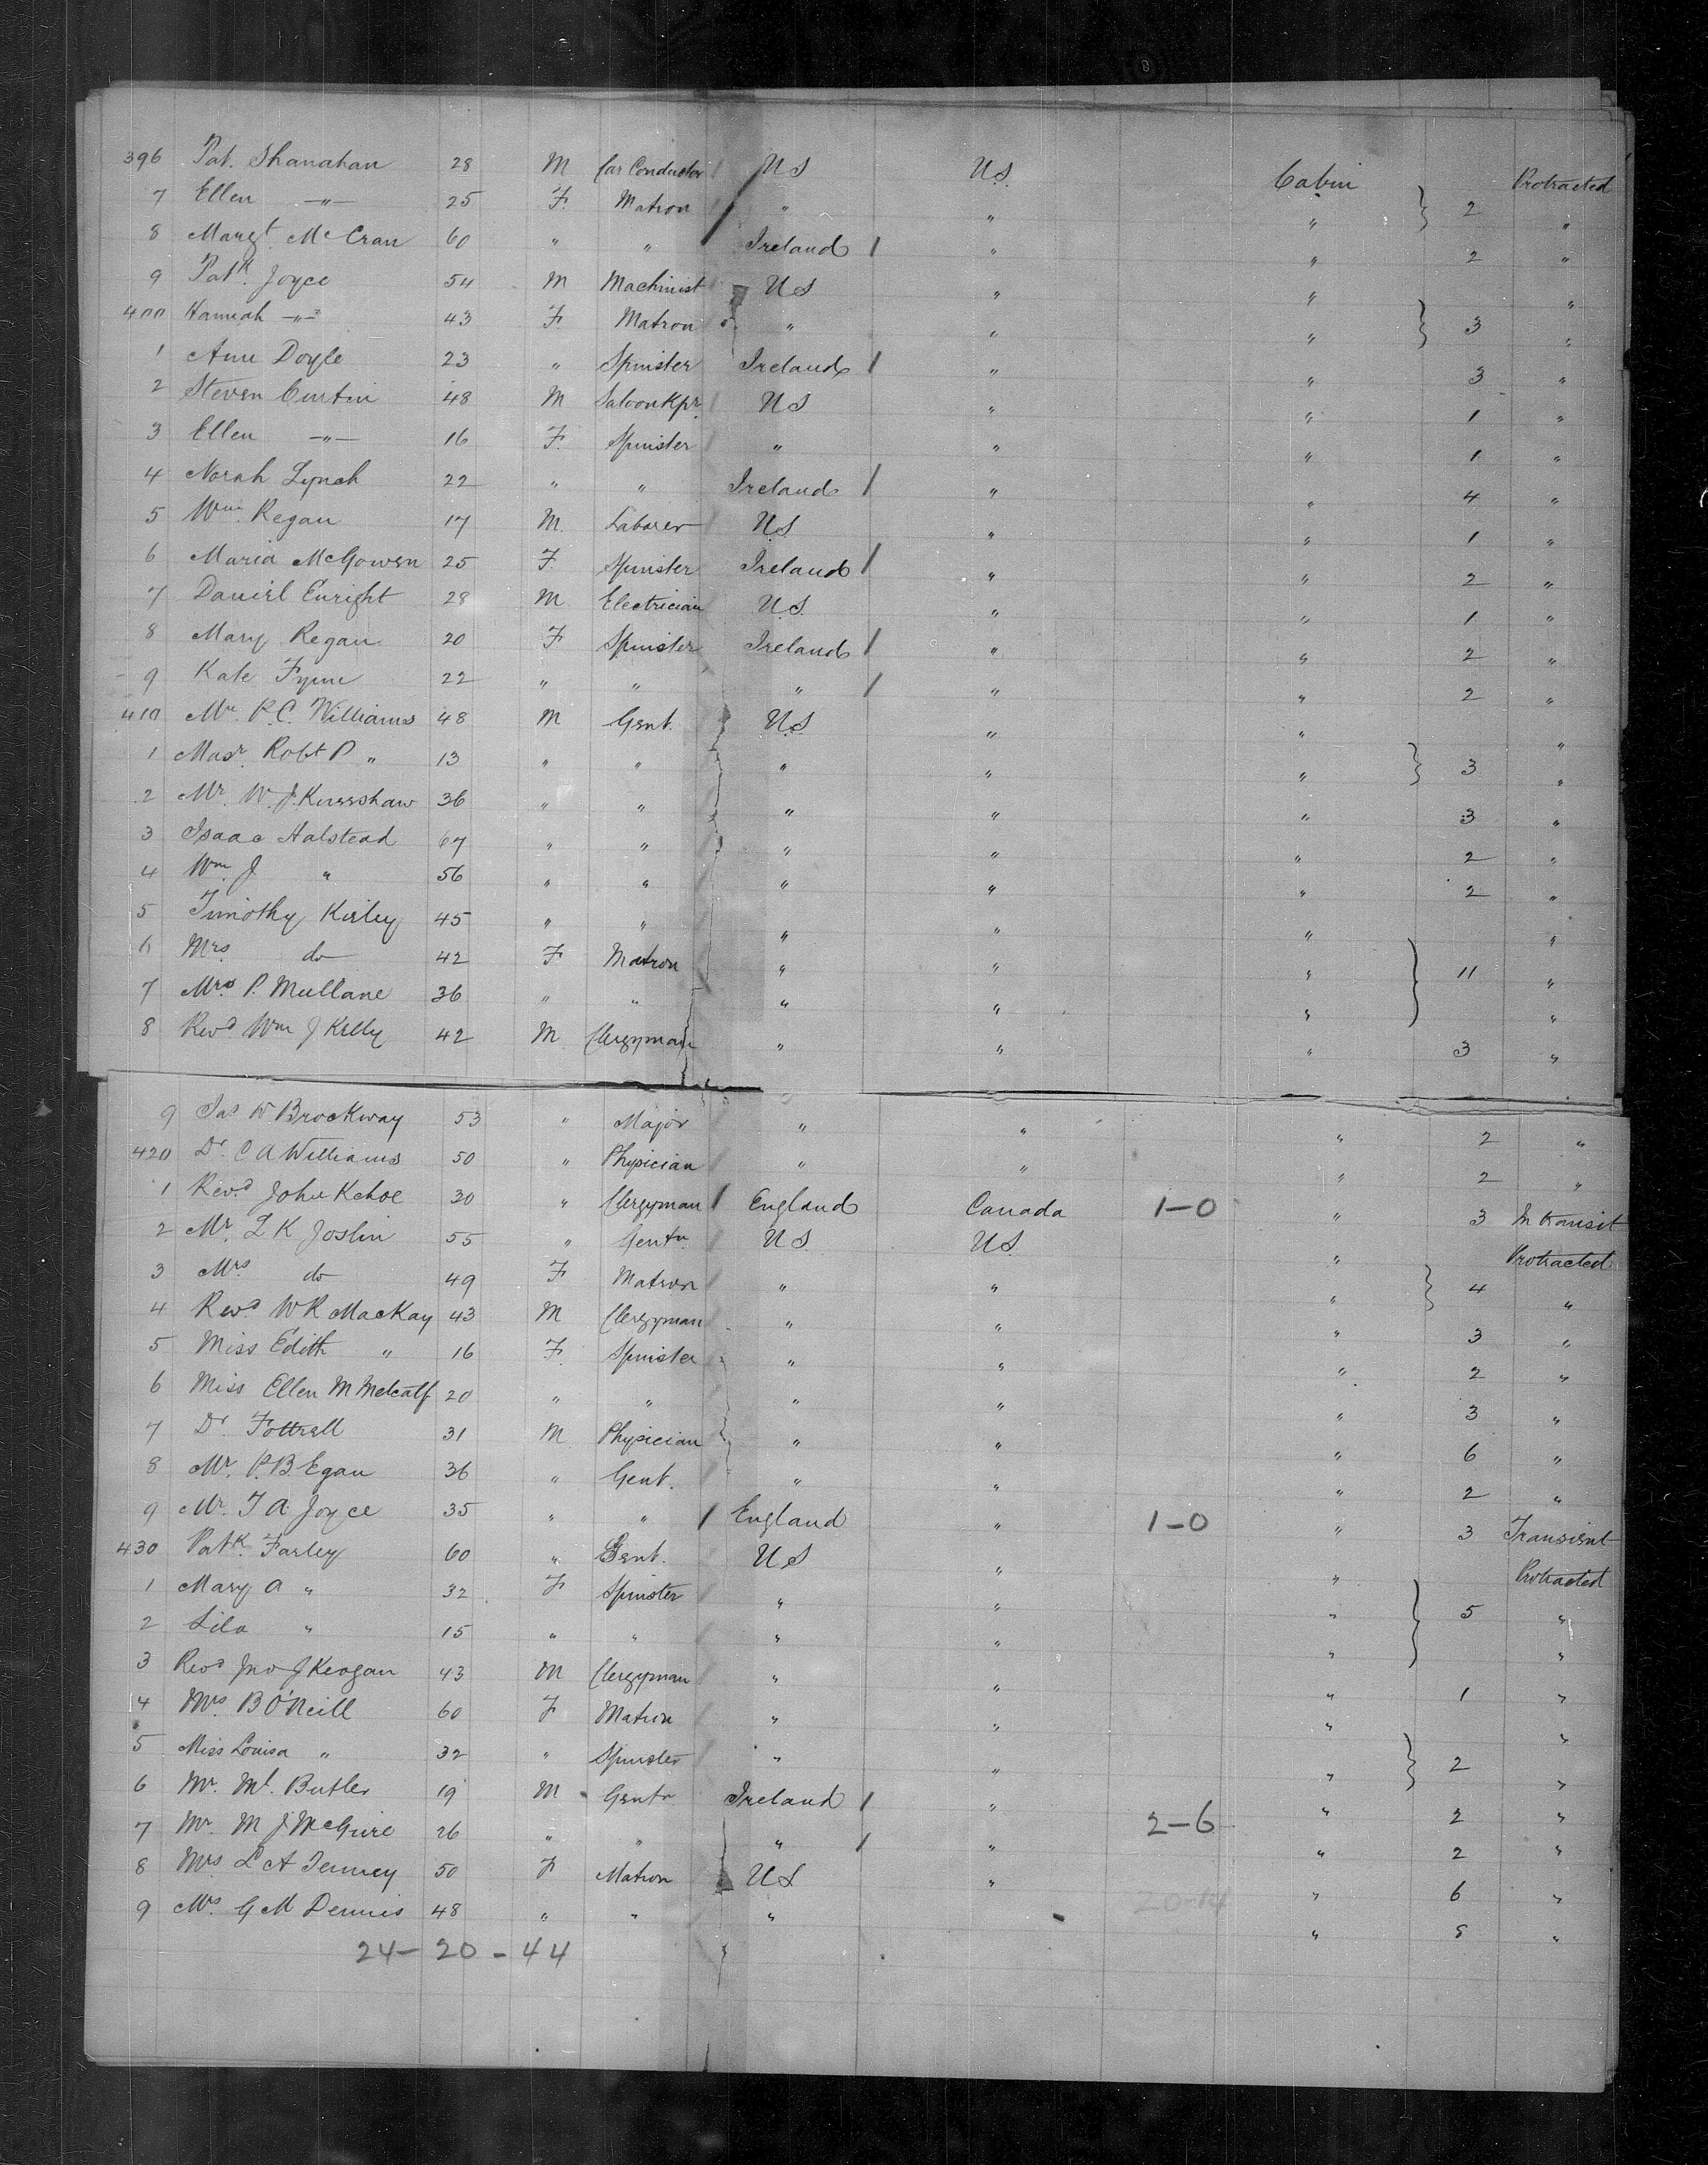 396 Pat. Shanahan 28 M Car Conductor U S U.S. Cabin Protracted
7 Ellen —"— 25 F. Matron " " " } 2 "
8 Margt. McCran 60 " " Ireland / " " 2 "
9 Patk. Joyce 54 M Machinist U S " " "
400 Hannah —"— 43 F Matron " " " } 3 "
1 Ann Doyle 23 " Spinster Ireland / " " 3 "
2 Steven Curtin 48 M SaloonKpr. U S " " 1 "
3 Ellen —"— 16 F. Spinster " " " 1 "
4 Norah Lynch 22 " " Ireland / " " 4 "
5 Wm. Regan 17 M. Laborer U.S " " 1 "
6 Maria McGowen 25 F. Spinster Ireland / " " 2 "
7 Daniel Enright 28 M Electrician U.S. " " 1 "
8 Mary Regan 20 F Spinster Ireland / " " 2 "
9 Kate Fynn 22 " " " / " " 2 "
410 Mr. P.C. Williams 48 M Gent. U.S " " "
1 Masr. Robt P " 13 " " " " " } 3 "
2 Mr. W. J. Kuresshaw 36 " " " " " 3 "
3 Isaac Halstead 67 " " " " " 2 "
4 Wm. J " 56 " " " " " 2 "
5 Timothy Kirley 45 " " " " " "
6 Mrs. do 42 F Matron " " " } 11 "
7 Mrs P. Mullane 36 " " " " " "
8 Revd Wm J Kelly 42 M Clergyman " " " 3 "
9 Jas W Brockway 53 " Major " " " 2 "
420 Dr. C A Williams 50 " Physician " " " 2 "
1 Revd. John Kehoe 30 " Clergyman / England Canada 1-0 " 3 In transit
2 Mr. L K Joslin 55 " Gentn U S U.S. " Protracted
3 Mrs. do 49 F Matron " " " } 4 "
4 Revd. W R MacKay 43 M Clergyman " " " 3 "
5 Miss Edith " 16 F. Spinster " " " 2 "
6 Miss Ellen M Metcalf 20 " " " " " 3 "
7 Dr. Fottrell 31 M Physician " " " 6 "
8 Mr. P.B Egan 36 " Gent. " " " 2 "
9 Mr. T A. Joyce 35 " " / England " 1-0 " 3 Transient
430 Patk. Farley 60 " Gent. U S " " Protracted
1 Mary A " 32 F Spinster " " " } 5 "
2 Lila " 15 " " " " " "
3 Revd Jno J Keogan 43 M Clergyman " " " 1 "
4 Mrs. B O'Neill 60 F Matron " " " "
5 Miss Louisa " 32 " Spinster " " " } 2 "
6 Mr. Ml. Butler 19 M Gentn Ireland / " " 2 "
7 Mr. M J McGuire 26 " " " / " 2-6 " 2 "
8 Mrs L A Tenney 50 F Matron U S " " 6 "
9 Mrs. G M Dennis 48 " " " 20-14 " 8 "
24-20-44